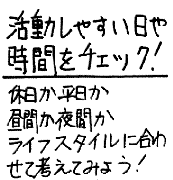 活動しやすい日や
時間をチェック!
休日か平日か
昼間か夜間か
ライフスタイルに合わ
せて考えてみよう!